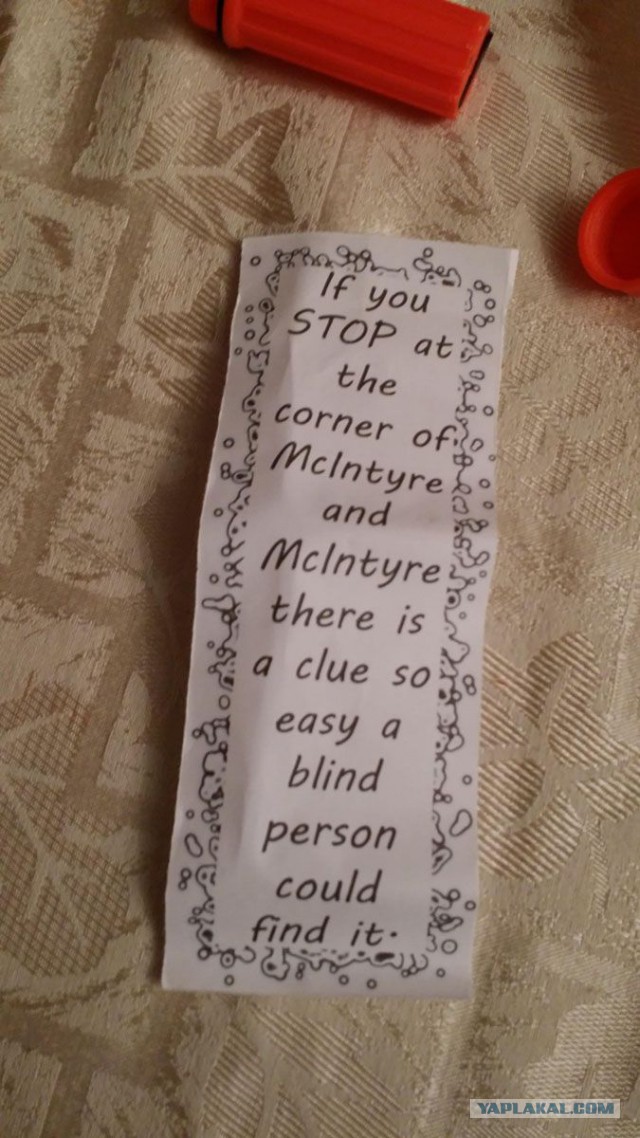 If you
STOP at
the
corner of
McIntyre
and
McIntyre
there is
a clue so
easy a
blind
person
could
find it.
YAPLAKAL.COM